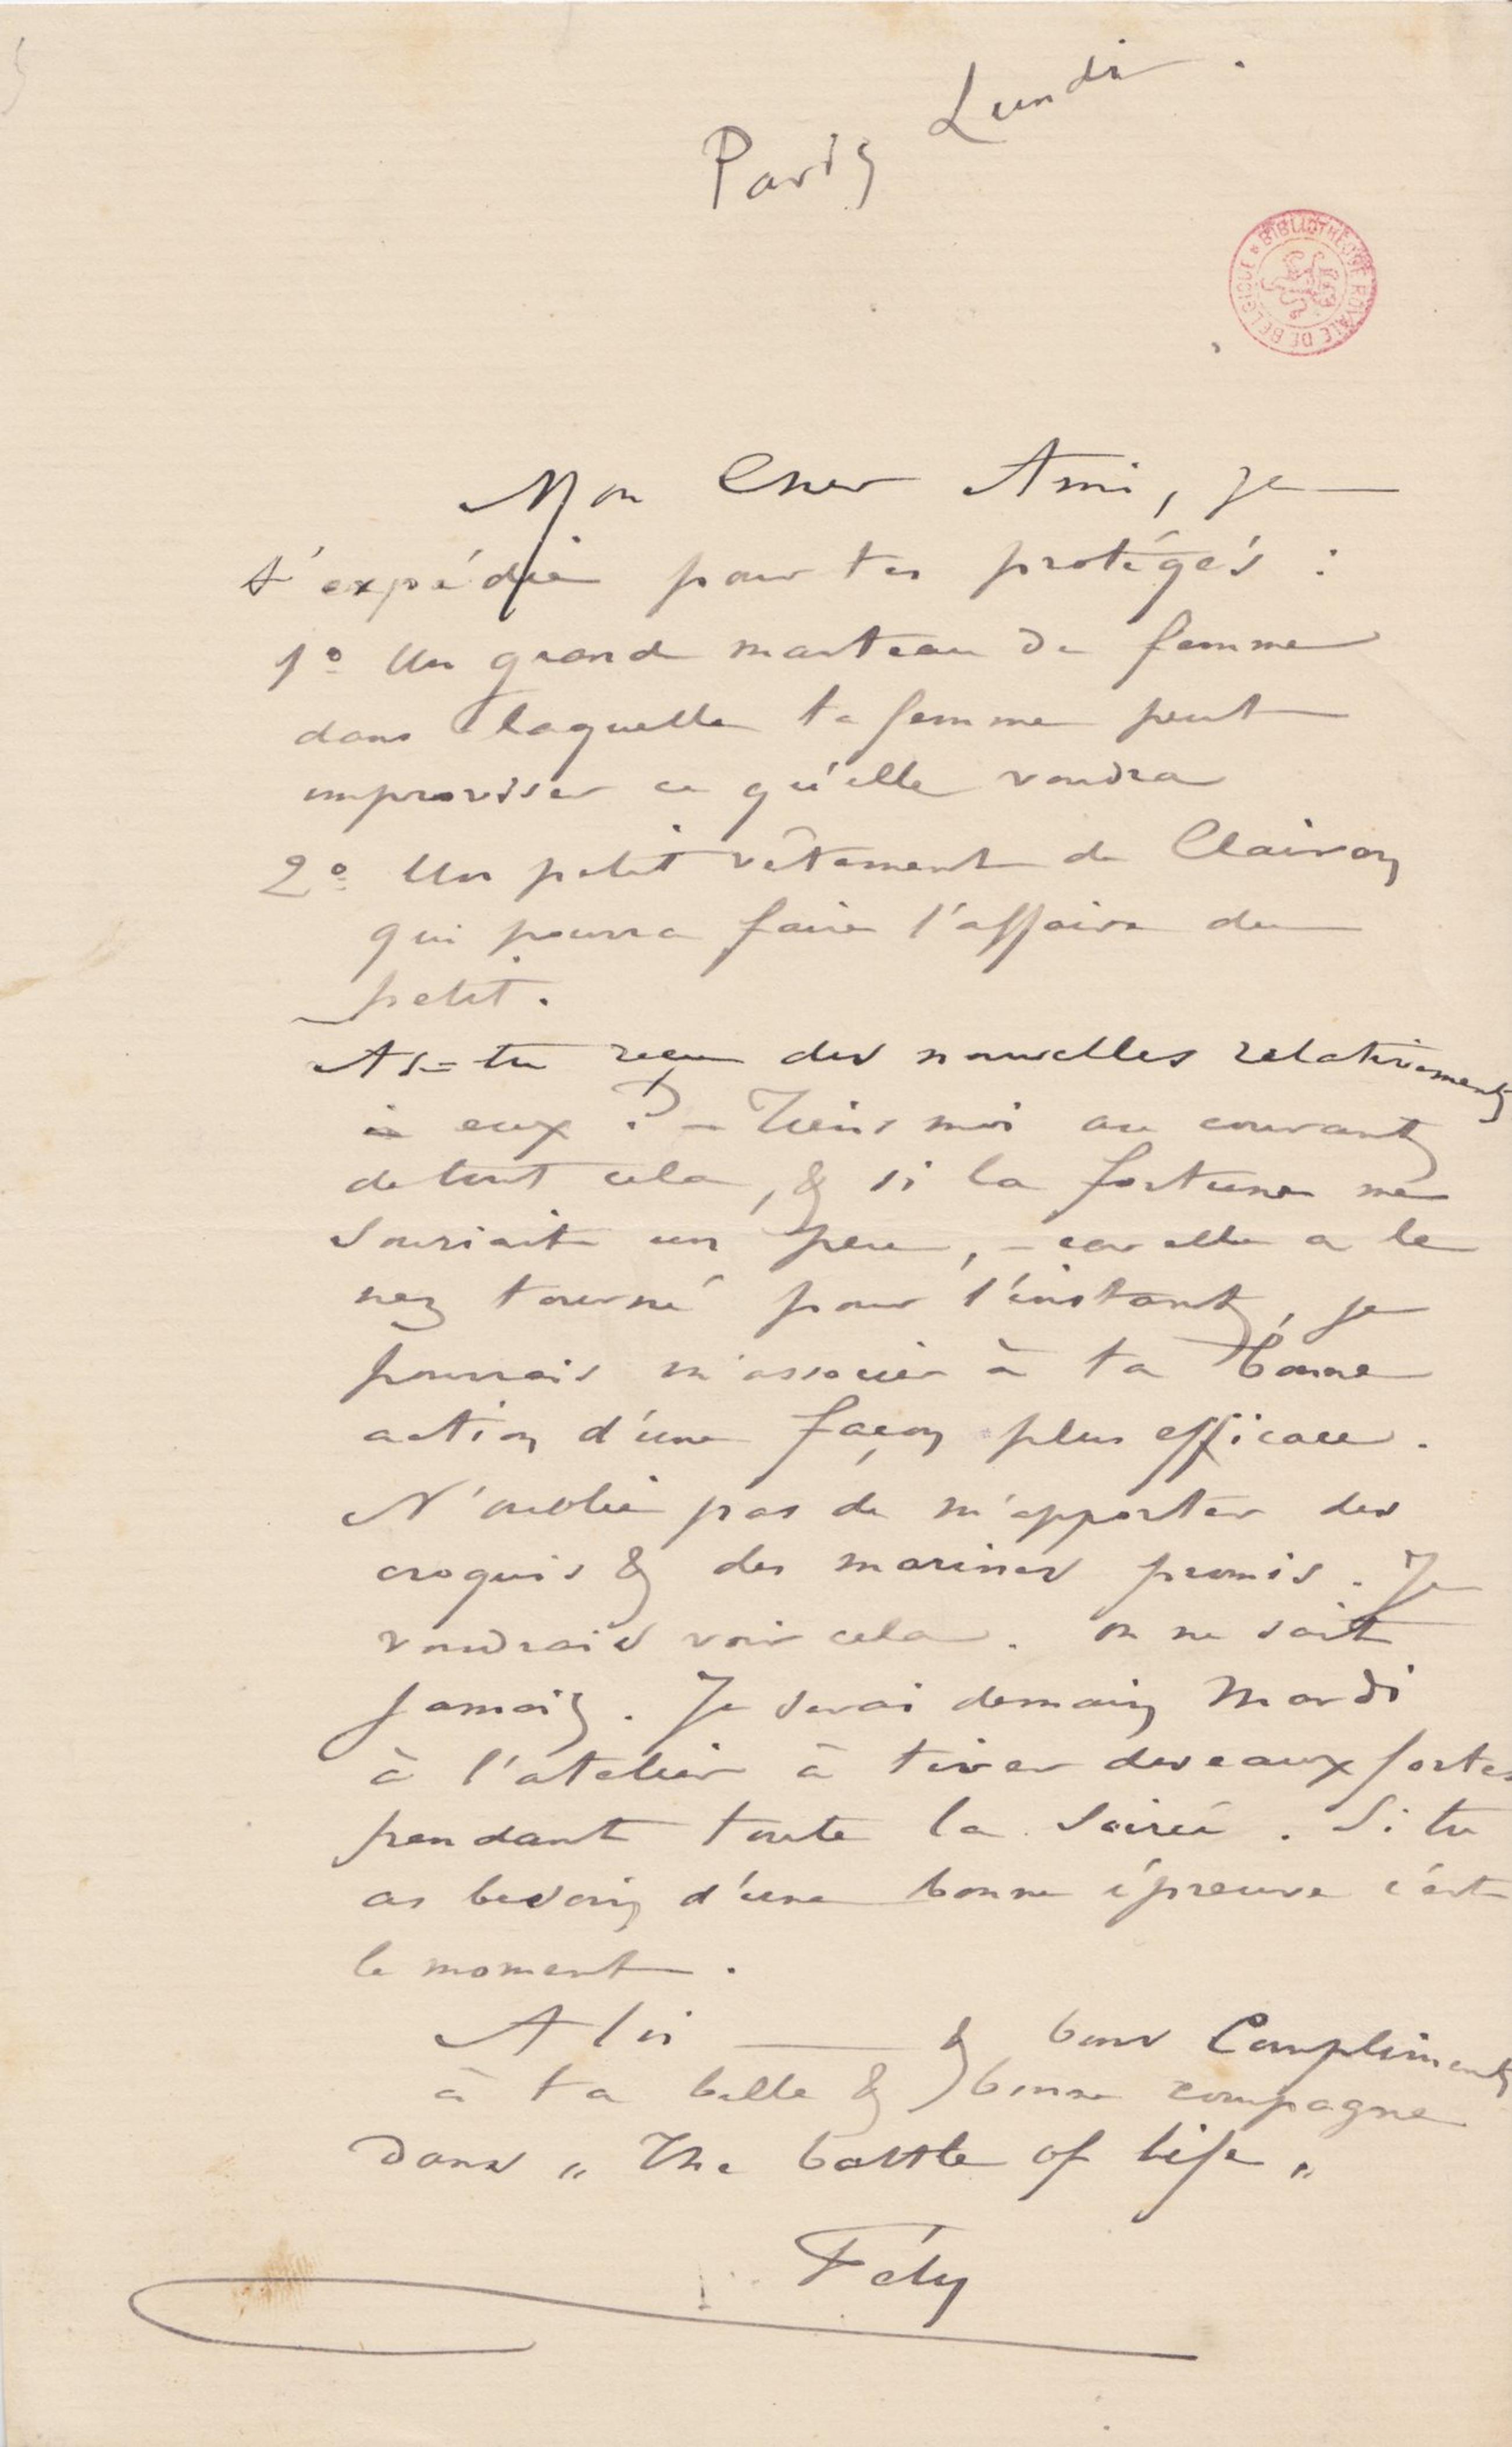 Paris Lundi.
BIBLIOTHÈQUE ROYALE DE BELGIQUE
Mon Cher Ami, je
t'expédie pour tes protégés :
1º Un grand manteau de femme
dans laquelle ta femme peut
improviser ce qu'elle voudra
2º Un petit vêtement de Clairon
qui pourra faire l'affaire du
petit.
As=tu reçu des nouvelles relativement
à eux ? – Tiens moi au courant
de tout cela, & si la fortune me
souriait un peu, – car elle a le
nez tourné pour l'instant, je
pourrais m'associer à ta bonne
action d'une façon plus efficace.
N'oublie pas de m'apporter des
croquis & des marines promis. Je
voudrais voir cela. on ne sait
jamais. Je serai demain Mardi
à l'atelier à tirer des eaux fortes
pendant toute la soirée. Si tu
as besoin d'une bonne épreuve c'est
le moment.
A toi — & bons Compliments
à ta belle & bonne compagne
Dans „ The battle of life „
Fély